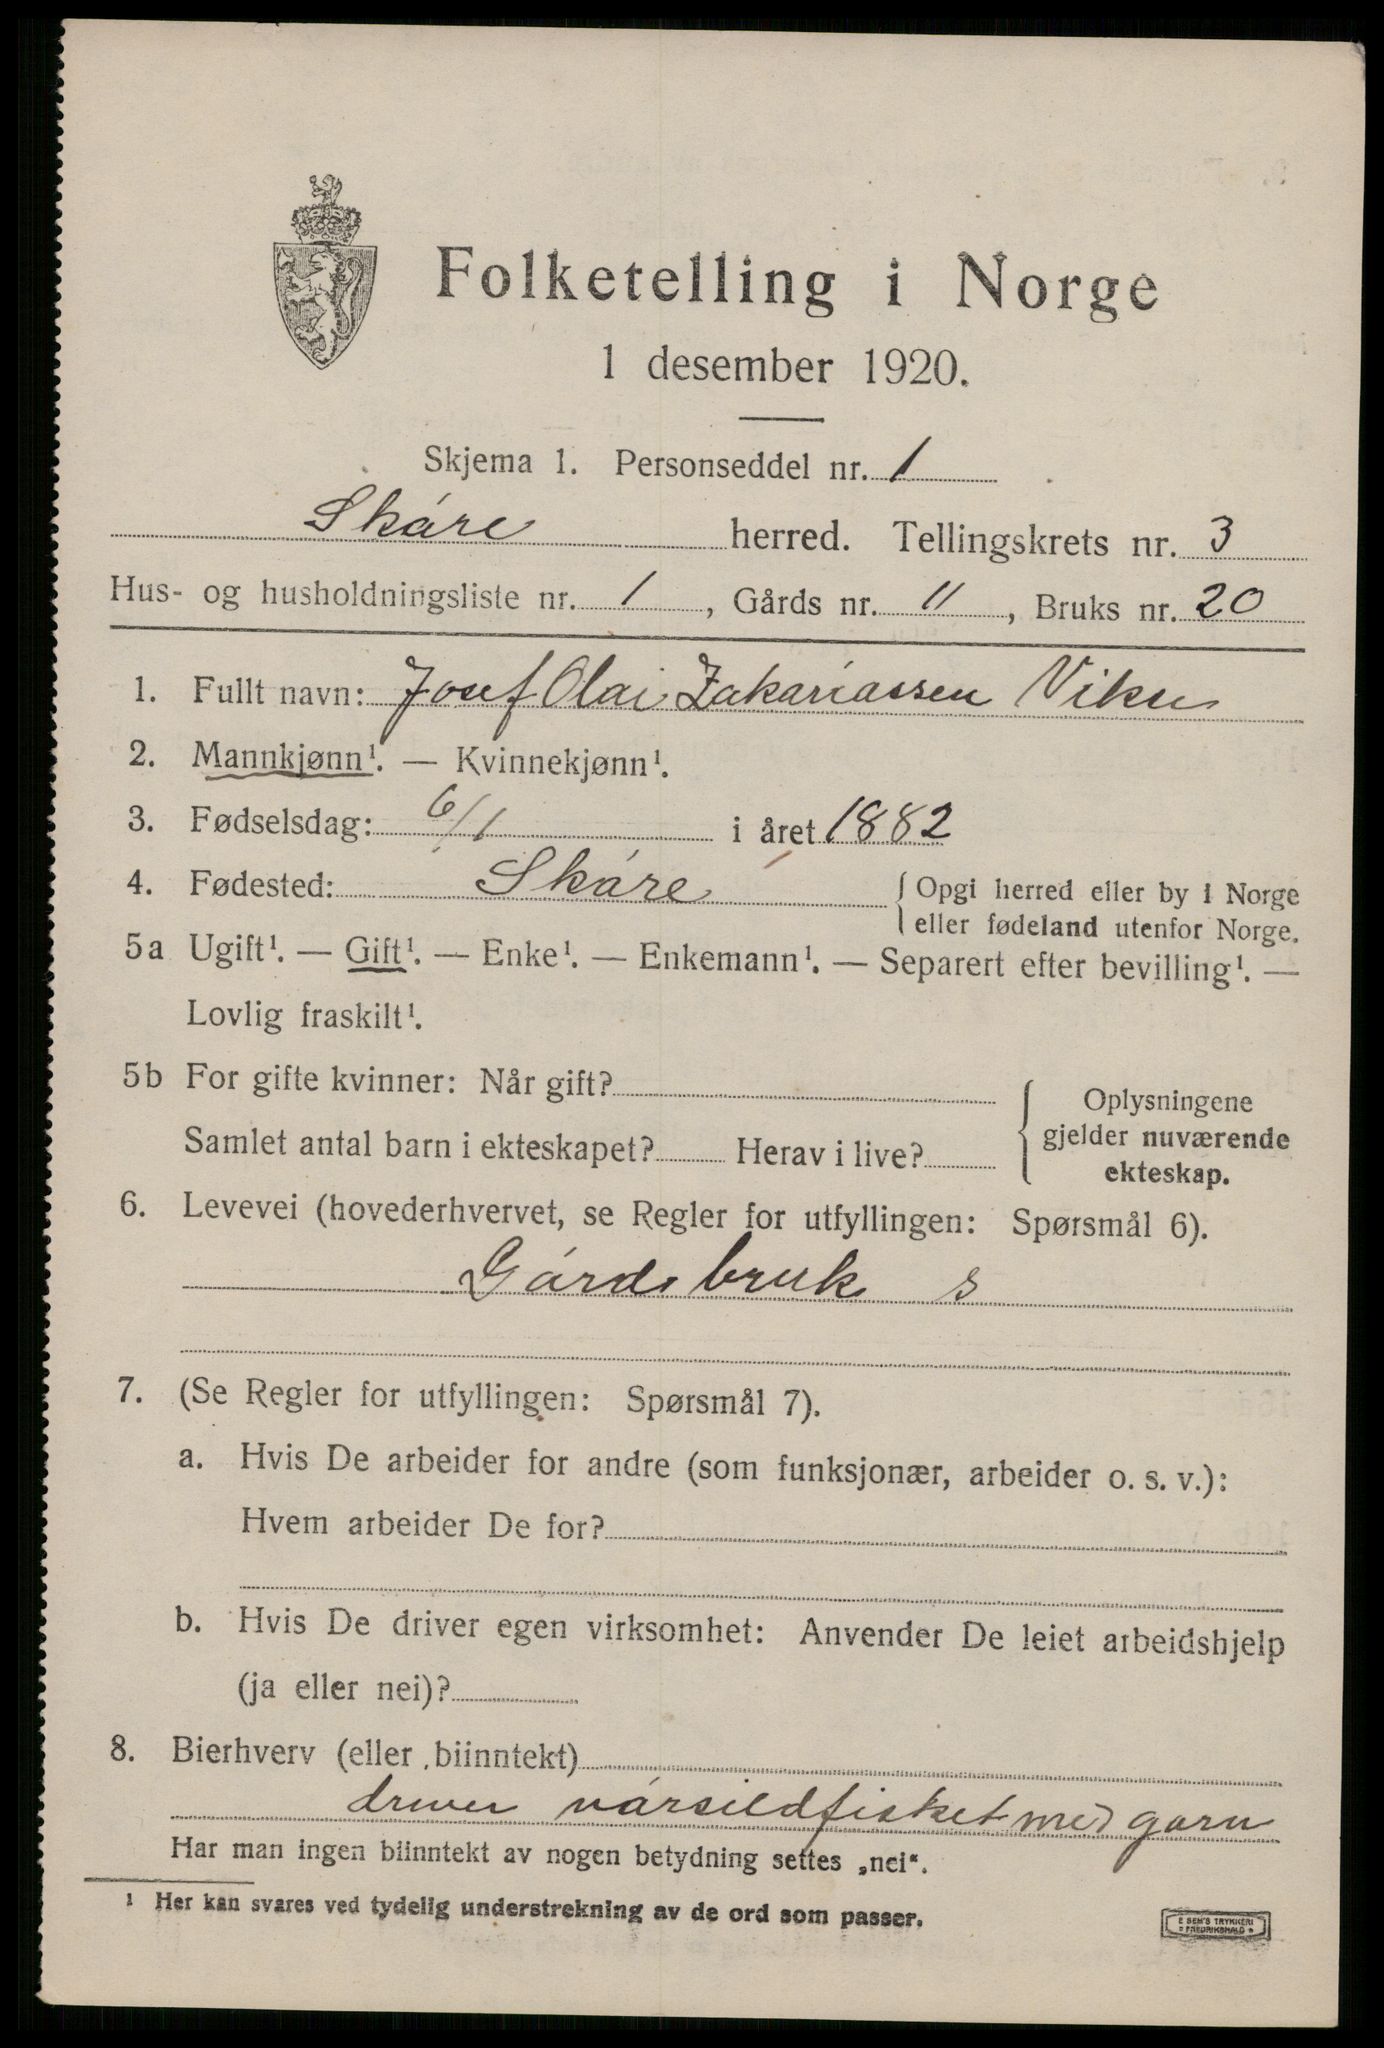 Folketelling i Norge
1 desember 1920.
Skjema 1. Personseddel nr. 1
Skåre herred. Tellingskrets nr. 3
Hus- og husholdningsliste nr. 1, Gårds nr. 11, Bruks nr. 20
1. Fullt navn: Josef Olai Zakariassen Viken
2. Mannkjønn¹. — Kvinnekjønn¹.
3. Fødselsdag: 6/1 i året 1882
4. Fødested: Skåre { Opgi herred eller by i Norge
eller fødeland utenfor Norge.
5a Ugift¹. — Gift¹. — Enke¹. — Enkemann¹. — Separert efter bevilling¹. —
Lovlig fraskilt¹.
5b For gifte kvinner: Når gift?
Samlet antal barn i ekteskapet? Herav i live?
Oplysningene
gjelder nuværende
ekteskap.
6. Levevei (hovederhvervet, se Regler for utfyllingen: Spørsmål 6).
Gårdsbruk s
7. (Se Regler for utfyllingen: Spørsmål 7).
a. Hvis De arbeider for andre (som funksjonær, arbeider o. s. v.):
Hvem arbeider De for?
b. Hvis De driver egen virksomhet: Anvender De leiet arbeidshjelp
(ja eller nei)?
8. Bierhverv (eller biinntekt)
driver vårsildfisket med garn
Har man ingen biinntekt av nogen betydning settes „nei“.
¹ Her kan svares ved tydelig understrekning av de ord som passer.
E SEM'S TRYKKERI
FREDRIKSHALD